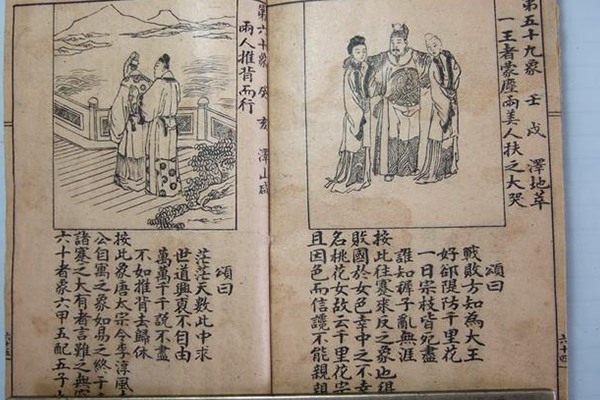 第五十九象 壬戌 澤地萃
一王者蒙塵兩美人扶之大哭
頌曰
戰敗方知為大王
好郤隄防千里花
一日宗枝皆死盡
誰知裤子亂無涯
按此往蹇來反之象也组
敗國於女色幸中之不幸
名桃花女故云千里花宗
且因色而信讒不能親親
六十四
第六十象 癸亥 澤山咸
兩人推背而行
頌曰
茫茫天數此中求
世道興衰不自由
萬萬千千說不盡
不如推背去歸休
按此象唐太宗令李淳風
公自寓之象如易之終于
諸蹇之大有者言雖之無窮
六十者象六甲五配五子
六十五